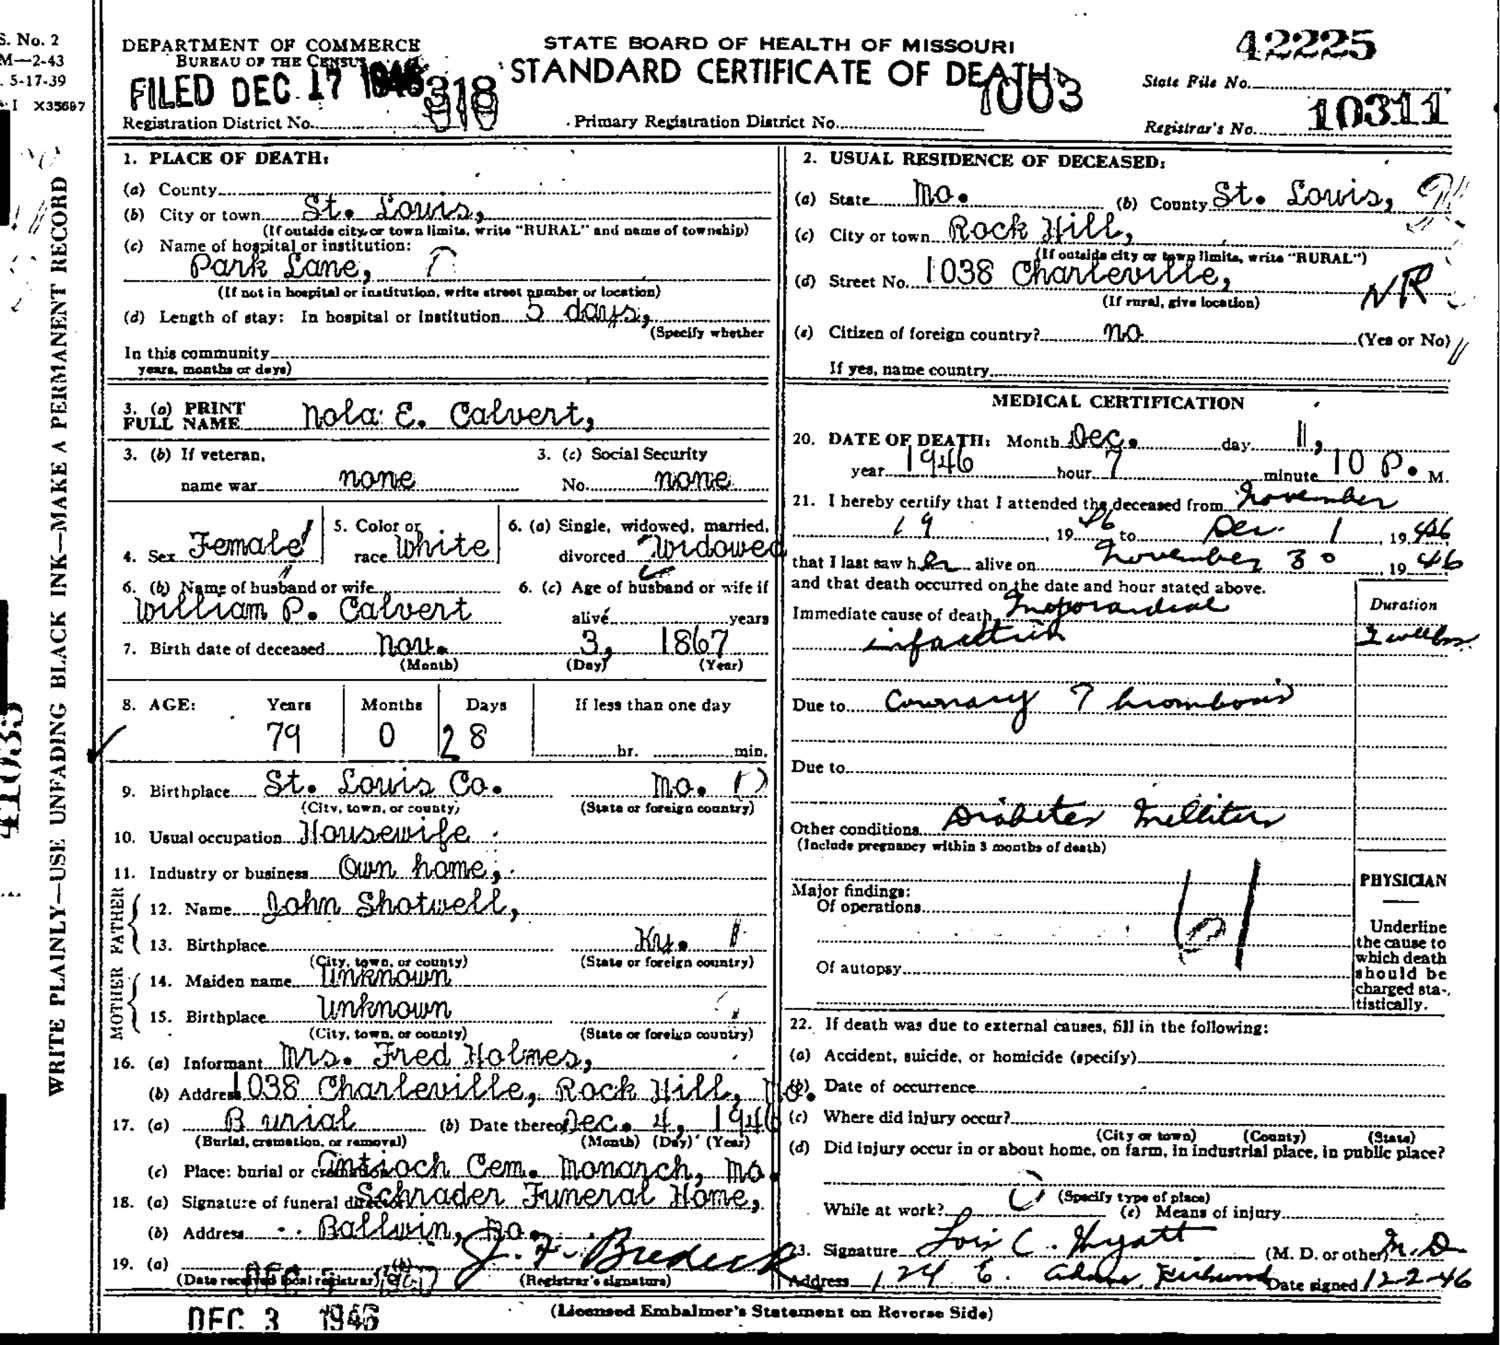 S. No. 2
M—2-43
5-17-39
I X35697
WRITE PLAINLY—USE UNFADING BLACK INK—MAKE A PERMANENT RECORD
DEPARTMENT OF COMMERCE
BUREAU OF THE CENSUS
STATE BOARD OF HEALTH OF MISSOURI
STANDARD CERTIFICATE OF DEATH
42225
State File No.
FILED DEC 17 1946
318
1003
Registration District No.
Primary Registration District No.
Registrar's No. 10311
1. PLACE OF DEATH:
(a) County
(b) City or town St. Louis,
(If outside city or town limits, write "RURAL" and name of township)
(c) Name of hospital or institution:
Park Lane,
(If not in hospital or institution, write street number or location)
(d) Length of stay: In hospital or institution 5 days,
(Specify whether
In this community
years, months or days)
2. USUAL RESIDENCE OF DECEASED:
(a) State Mo. (b) County St. Louis,
(c) City or town Rock Hill,
(If outside city or town limits, write "RURAL")
(d) Street No. 1038 Charleville,
(If rural, give location)
NR
(e) Citizen of foreign country? no (Yes or No)
If yes, name country
3. (a) PRINT
FULL NAME Nola E. Calvert,
3. (b) If veteran,
name war none
3. (c) Social Security
No. none
4. Sex Female
5. Color or
race White
6. (a) Single, widowed, married,
divorced Widowed
6. (b) Name of husband or wife
William P. Calvert
6. (c) Age of husband or wife if
alive years
7. Birth date of deceased Nov. 3, 1867
(Month) (Day) (Year)
8. AGE: Years Months Days If less than one day
79 0 28 hr. min.
9. Birthplace St. Louis Co. Mo.
(City, town, or county) (State or foreign country)
10. Usual occupation Housewife
11. Industry or business Own home,
FATHER
12. Name John Shotwell,
13. Birthplace Ky.
(City, town, or county) (State or foreign country)
MOTHER
14. Maiden name Unknown
15. Birthplace Unknown
(City, town, or county) (State or foreign country)
16. (a) Informant Mrs. Fred Holmes,
(b) Address 1038 Charleville, Rock Hill, Mo.
17. (a) Burial (b) Date thereof Dec. 4, 1946
(Burial, cremation, or removal) (Month) (Day) (Year)
(c) Place: burial or cremation Antioch Cem. Monarch, Mo.
18. (a) Signature of funeral director Schrader Funeral Home,
(b) Address Ballwin, Mo.
19. (a) (b) J. F. Bredeck
(Date received local registrar) (Registrar's signature)
DEC 3 1946
MEDICAL CERTIFICATION
20. DATE OF DEATH: Month Dec. day 1,
year 1946 hour 7 minute 10 P. M.
21. I hereby certify that I attended the deceased from November
19, 1946 to Dec. 1 1946
that I last saw her alive on November 30 1946
and that death occurred on the date and hour stated above.
Duration
Immediate cause of death Myocardial
infarction 2 weeks
Due to Coronary Thrombosis
Due to
Other conditions Diabetes Mellitus
(Include pregnancy within 3 months of death)
Major findings:
Of operations
Of autopsy
61
PHYSICIAN
Underline
the cause to
which death
should be
charged sta-
tistically.
22. If death was due to external causes, fill in the following:
(a) Accident, suicide, or homicide (specify)
(b) Date of occurrence
(c) Where did injury occur?
(City or town) (County) (State)
(d) Did injury occur in or about home, on farm, in industrial place, in public place?
(Specify type of place)
While at work? (e) Means of injury
23. Signature Lois C. Hyatt (M. D. or other) M.D.
Address 124 E. Adams Kirkwood Date signed 12-2-46
(Licensed Embalmer's Statement on Reverse Side)